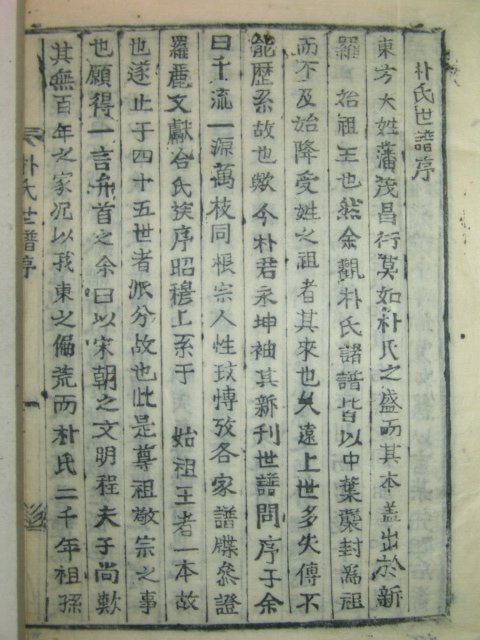 朴氏世譜序
東方大姓藩茂昌衍莫如朴氏之盛而其本盖出於新
羅 始祖王也然余觀朴氏諸譜皆以中葉襲封爲祖
而不及始降受姓之祖者其來也久遠上世多失傳不
能歷系故也歟今朴君永坤袖其新刊世譜問序于余
曰千流一源萬枝同根宗人性玟博攷各家譜牒參證
羅麗文獻合氏族序昭穆上系于 始祖王者一本故
也遂止于四十五世者派分故也此是尊祖敬宗之事
也願得一言弁首之余曰以宋朝之文明程夫子尚歎
其無百年之家况以我東之偏荒而朴氏二千年祖孫
朴氏世譜序
一